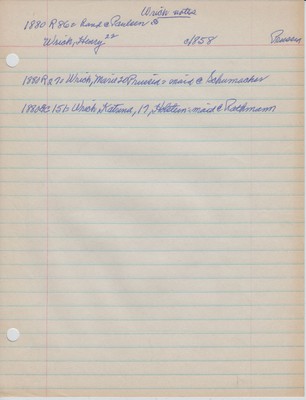 Wrich notes
1880 R 86 = hand @ Paulsen @
Wrich, Henry 22 c/1858 Preussen
1880 R 271 Wrich, Maria 20 Prussia = maid @ Schumacher
1880 156 Wrich, Katrina, 17, Holstein = maid @ Rothmann